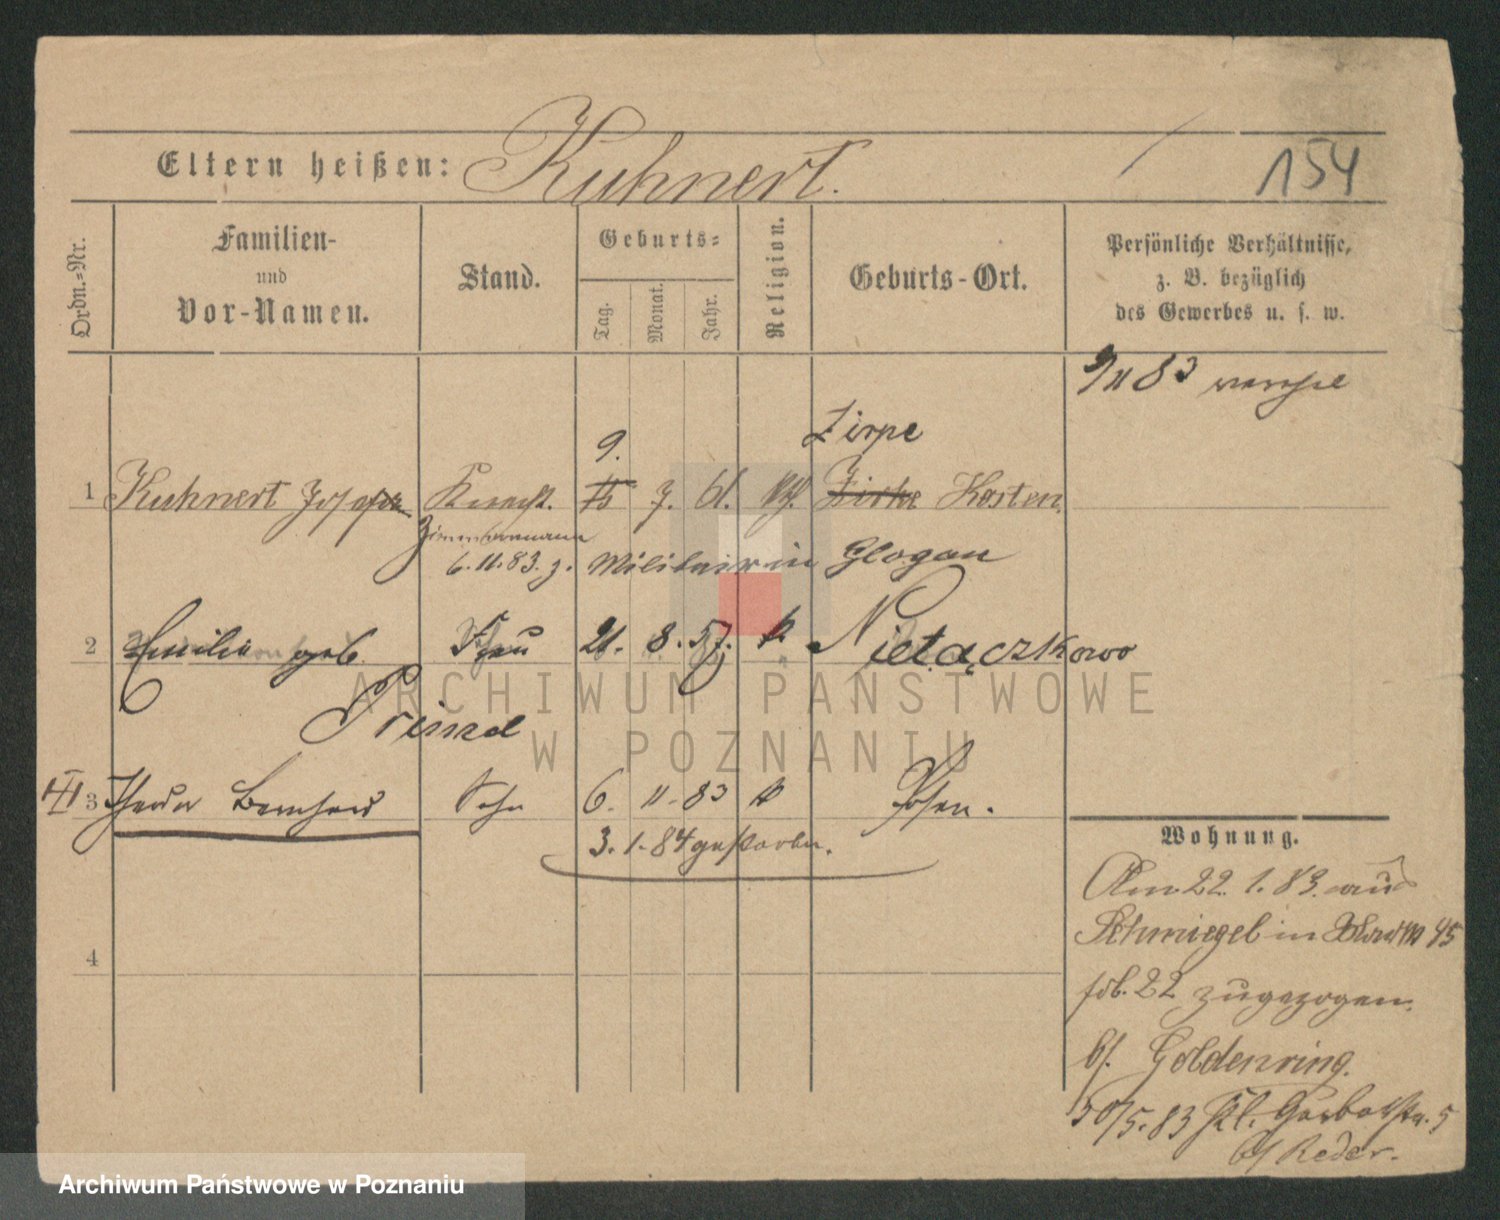 Eltern heißen: Kuhnert. 154
Ordn.=Nr.
Familien-
und
Vor-Namen.
Stand.
Geburts=
Tag.
Monat.
Jahr.
Religion.
Geburts-Ort.
Persönliche Verhältnisse,
z. B. bezüglich
des Gewerbes u. s. w.
9/11 83
Zirpe
9.
1 Kuhnert Joseph Knecht. 7. 61. Kth. Zirke Kosten
Zimmermann
6.11.83. z. Militair in Glogau
2 Emilie geb Frau 21. 8. 57. k. Nietączkowo
Prinzel
3 Bernhard Sohn 6. 11. 83 k Posen.
3. 1. 84 gestorben.
4
Wohnung.
Am 22. 1. 83. aus
Schmiegel in 45
22 zugezogen.
bei Goldenring.
30/5. 83 Kl. Gerberstr. 5
bei Reder.
ARCHIWUM PAŃSTWOWE
W POZNANIU
Archiwum Państwowe w Poznaniu